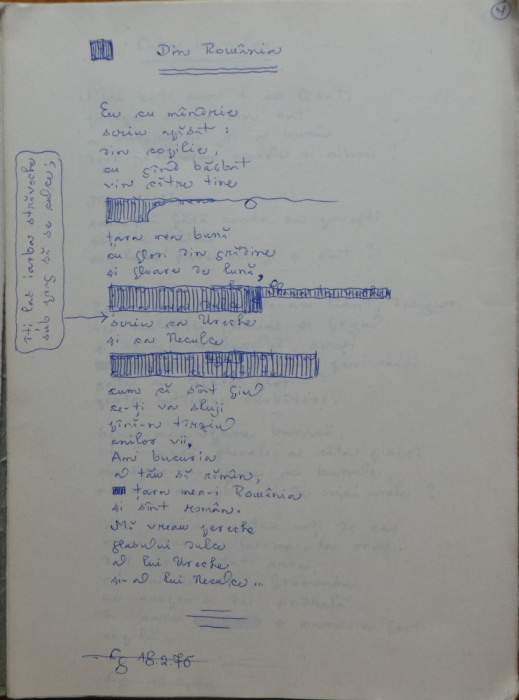 4
Din România
Eu cu mîndrie
scriu apăsat:
din copilie,
cu gînd băgbat
vin către tine
țara mea bună
cu flori din grădine
și floare de lună,
îți las iarba străveche
sub prag să se culce;
scriu ca Ureche
și ca Neculce
cum că sînt fiul
ce-ți va sluji
pînă-n tîrziul
anilor vii.
Am bucuria
al tău să rămîn,
țara mea-i România
și sînt român.
Mă vreau pereche
glasului dulce
al lui Ureche
și-al lui Neculce...
18.2.76